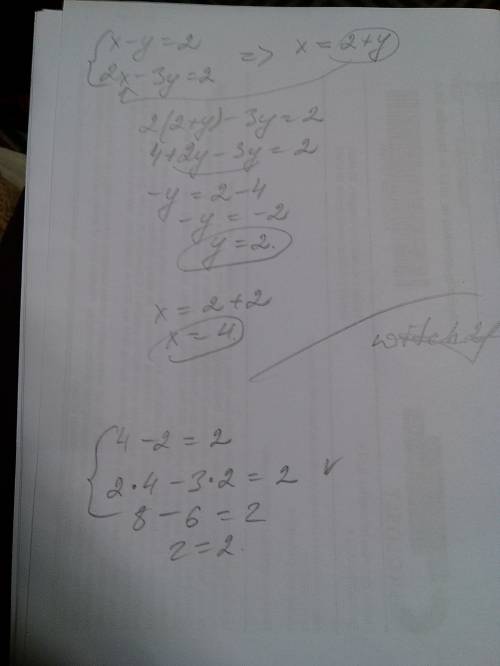 x - y = 2 => x = 2+y
2x - 3y = 2
2(2+y) - 3y = 2
4 + 2y - 3y = 2
-y = 2 - 4
-y = -2
y = 2.
x = 2 + 2
x = 4.
4 - 2 = 2
2·4 - 3·2 = 2 v
8 - 6 = 2
2 = 2.